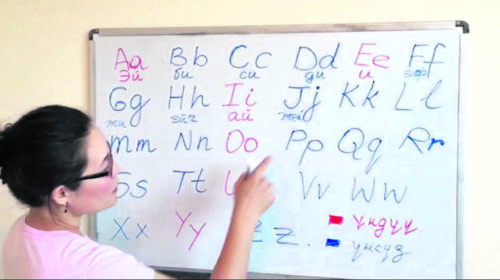 Aa Bb Cc Dd Ee Ff
Эй би си ди и эф
Gg Hh Ii Jj Kk Ll
жи эйч ай жей
Mm Nn Oo Pp Qq Rr
Ss Tt U Vv Ww
Xx Yy Zz. үндүү
үнсүз